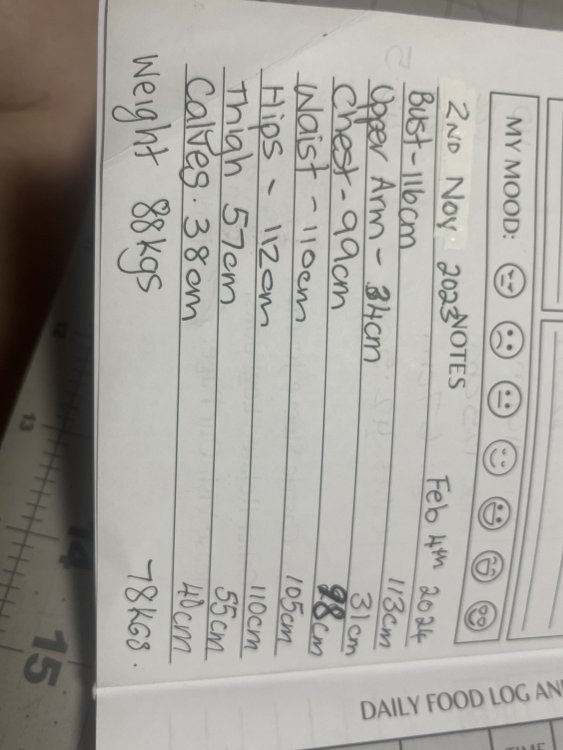 MY MOOD:
NOTES
2ND Nov 2023 Feb 4th 2024
Bust - 116cm 113cm
Upper Arm - 34cm 31cm
Chest - 99cm 98cm
Waist - 110cm 105cm
Hips - 112cm 110cm
Thigh 57cm 55cm
Calves. 38cm 40cm
Weight 88kgs 78KGS.
DAILY FOOD LOG AN
TIME
12
13
14
15